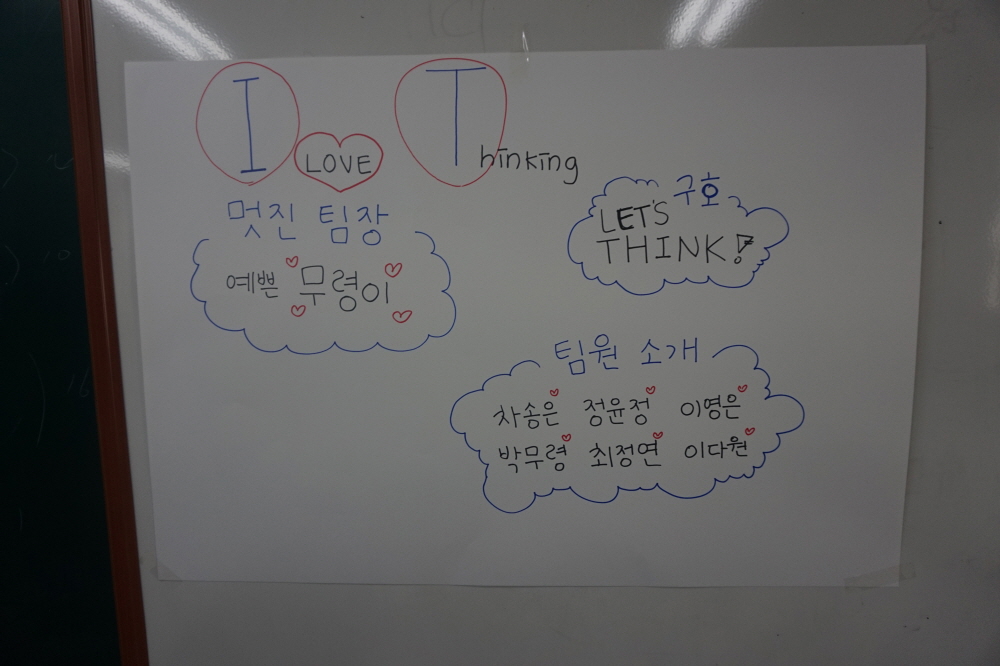 I LOVE Thinking
멋진 팀장
예쁜 무령이
구호
LET'S
THINK!
팀원 소개
차송은 정윤정 이영은
박무령 최정연 이다원